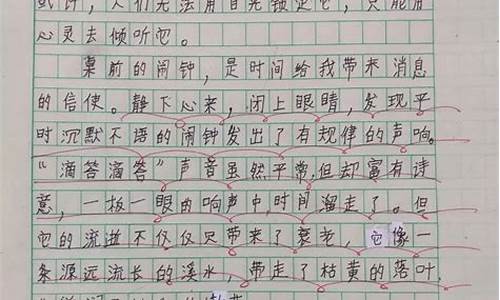 或许，人们无法用目光锁定它，只能用
心灵去倾听它。
桌前的闹钟，是时间给我带来消息
的信使。静下心来，闭上眼睛，发现平
时沉默不语的闹钟发出了有规律的声响。
“滴答滴答”声音虽然平常，但却富有诗
意，一板一眼的响声中，时间溜走了。但
它的流逝不仅仅只带来了衰老，它像一
条源远流长的溪水，带走了枯黄的落叶，